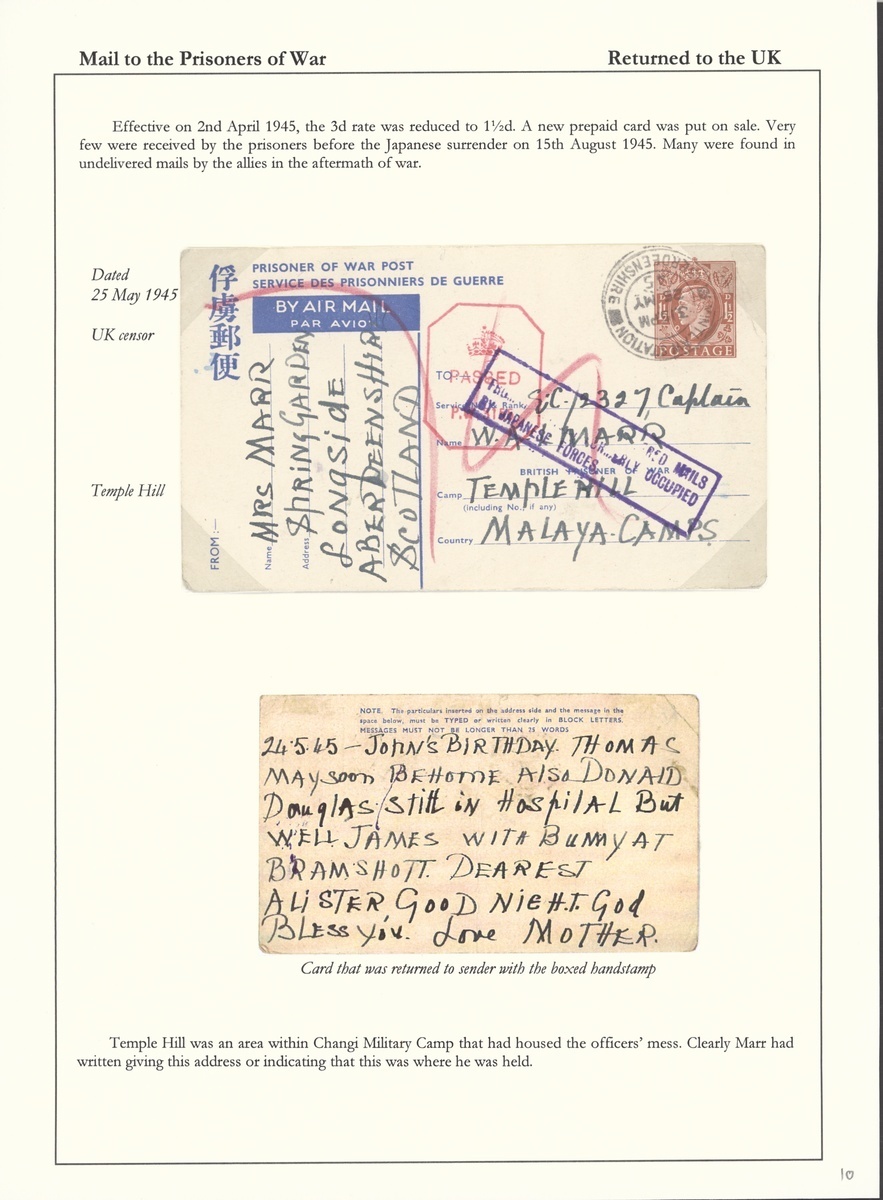 Mail to the Prisoners of War
Returned to the UK
Effective on 2nd April 1945, the 3d rate was reduced to 1½d. A new prepaid card was put on sale. Very
few were received by the prisoners before the Japanese surrender on 15th August 1945. Many were found in
undelivered mails by the allies in the aftermath of war.
Dated
25 May 1945
UK censor
Temple Hill
俘虜郵便
PRISONER OF WAR POST
SERVICE DES PRISONNIERS DE GUERRE
BY AIR MAIL
PAR AVION
FROM:—
Name MRS MARR
Address SPRINGGARDEN
LONGSIDE
ABERDEENSHIRE
SCOTLAND
PASSED
POSTAGE
TO:
Service No. & Rank EC/2327, Captain
Name W. A. MARR
BRITISH PRISONER OF WAR
Camp TEMPLE HILL
(including No., if any)
Country MALAYA-CAMPS
RED MAILS
BY JAPANESE FORCES
OCCUPIED
NOTE. The particulars inserted on the address side and the message in the
space below, must be TYPED or written clearly in BLOCK LETTERS.
MESSAGES MUST NOT BE LONGER THAN 25 WORDS
24.5.45 – JOHN'S BIRTHDAY. THOMAS
MAY soon BEHOME Also DONALD
DouglAS Still iN HospitAL But
WELL JAMES WITH BUNNY AT
BRAMSHOTT. DEAREST
ALISTER, GOOD NIGHT. God
BLESS YOU. Love MOTHER.
Card that was returned to sender with the boxed handstamp
Temple Hill was an area within Changi Military Camp that had housed the officers' mess. Clearly Marr had
written giving this address or indicating that this was where he was held.
10